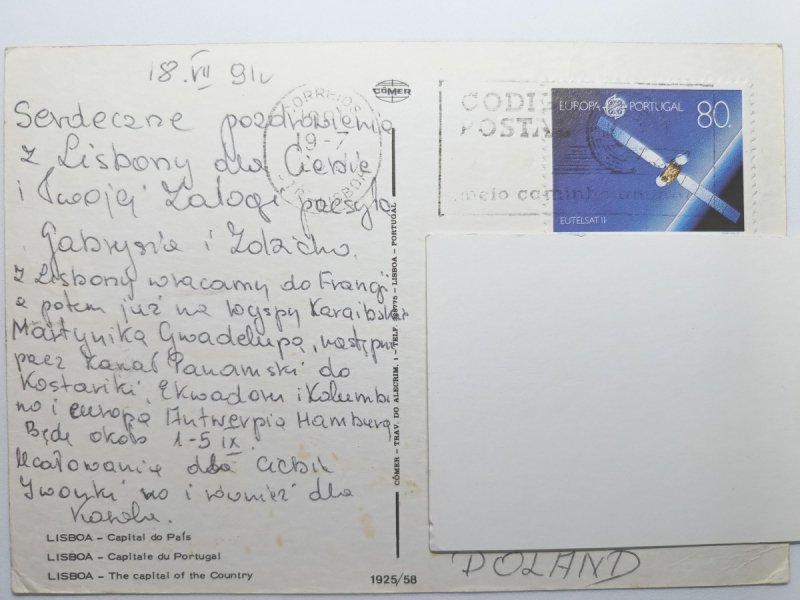 18.VII 91r
Serdeczne pozdrowienia
z Lisbony dla Ciebie
i Twojej Załogi przesyła
Gabrysia i
z Lisbony wracamy do Francji
a potem już na wyspy Karaibskie
Martynika Gwadelupa, następnie
przez Kanał Panamski do
Kostariki, Ekwadoru i Kolumbi
no i europa Antwerpia Hamburg
Będę około 1-5 IX.
Ucałowania dla Ciebie
Iwonki no i również dla
Karola.
LISBOA – Capital do País
LISBOA – Capitale du Portugal
LISBOA – The capital of the Country
1925/58
CÔMER
CÔMER – TRAV. DO ALECRIM, 1 – TELF. – LISBOA – PORTUGAL
CORREIOS
19-7
LISBOA
POSTAL
meio caminho
EUROPA PORTUGAL 80.
EUTELSAT II
POLAND